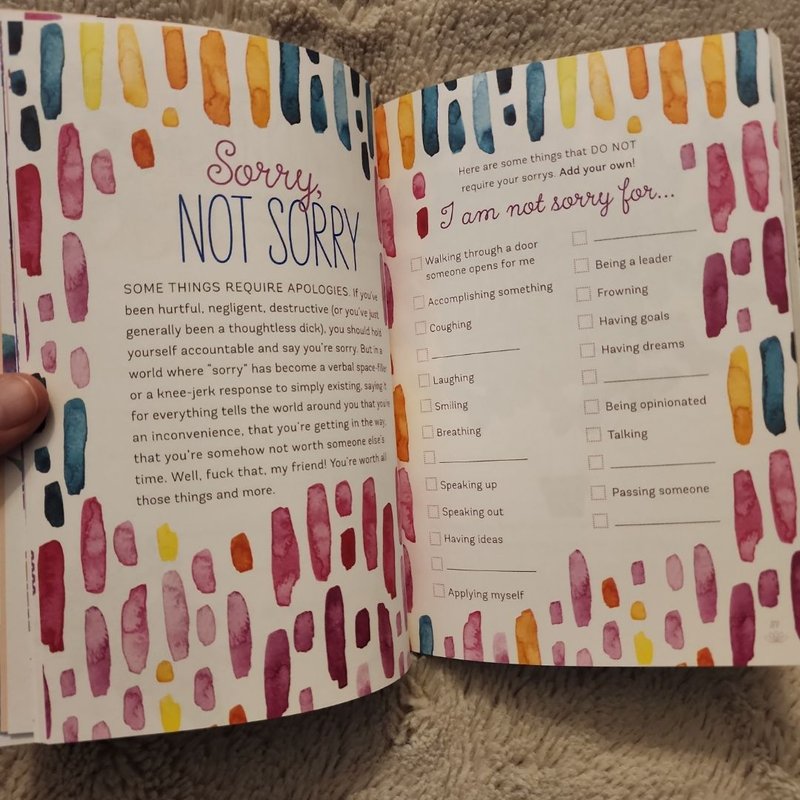 Sorry,
NOT SORRY
SOME THINGS REQUIRE APOLOGIES. If you've
been hurtful, negligent, destructive (or you've just
generally been a thoughtless dick), you should hold
yourself accountable and say you're sorry. But in a
world where "sorry" has become a verbal space-filler
or a knee-jerk response to simply existing, saying it
for everything tells the world around you that you're
an inconvenience, that you're getting in the way,
that you're somehow not worth someone else's
time. Well, fuck that, my friend! You're worth all
those things and more.
Here are some things that DO NOT
require your sorrys. Add your own!
I am not sorry for...
Walking through a door
someone opens for me
Accomplishing something
Coughing
Laughing
Smiling
Breathing
Speaking up
Speaking out
Having ideas
Applying myself
Being a leader
Frowning
Having goals
Having dreams
Being opinionated
Talking
Passing someone